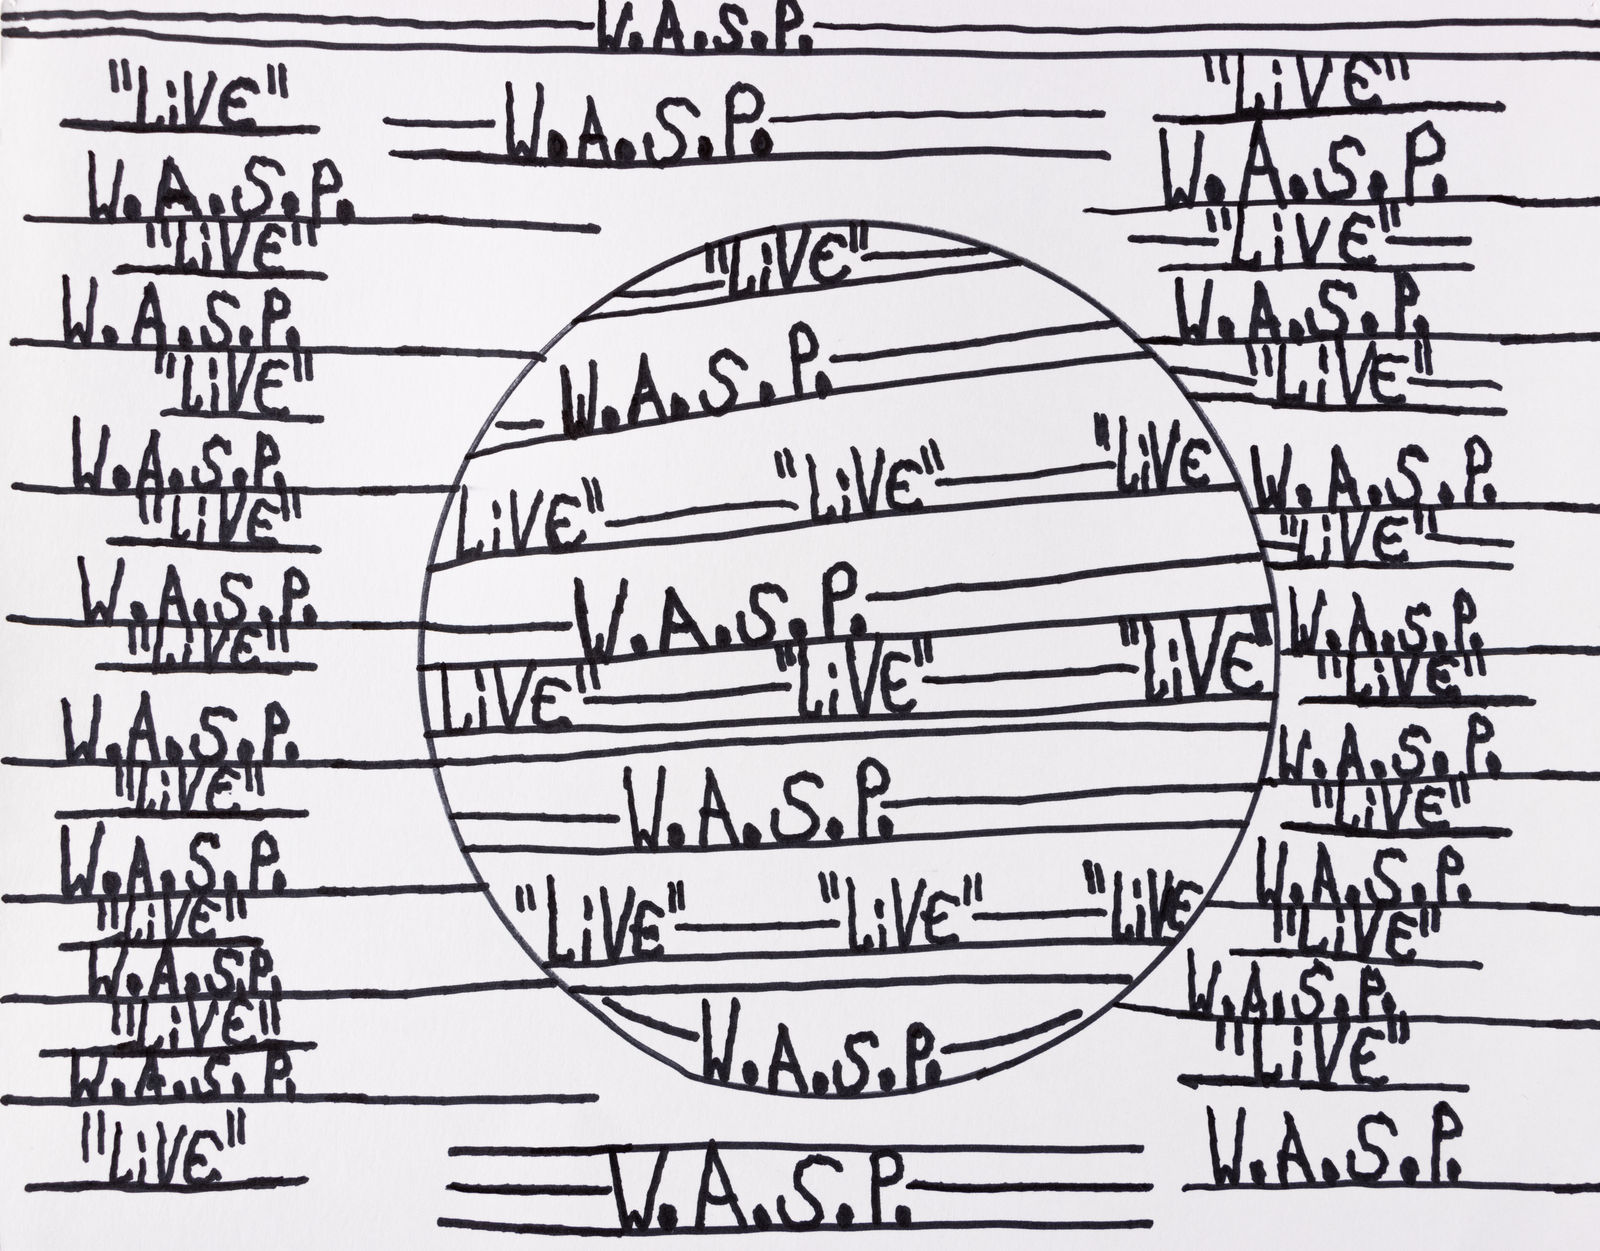 W.A.S.P.
"LiVE"
W.A.S.P.
"LiVE"
W.A.S.P.
"LiVE"
W.A.S.P.
"LiVE"
W.A.S.P.
"LiVE"
W.A.S.P.
"LiVE"
W.A.S.P.
"LiVE"
W.A.S.P.
"LiVE"
W.A.S.P.
"LiVE"
W.A.S.P.
"LiVE"
W.A.S.P.
"LiVE"
W.A.S.P.
"LiVE"
W.A.S.P.
LiVE" "LiVE" "LiVE
W.A.S.P.
LiVE" "LiVE" "LiVE"
W.A.S.P.
"LiVE" "LiVE" "LiVE
W.A.S.P.
W.A.S.P.
"LiVE"
W.A.S.P.
"LiVE"
W.A.S.P.
"LiVE"
W.A.S.P.
"LiVE"
W.A.S.P.
"LiVE"
W.A.S.P.
"LiVE"
W.A.S.P.
"LiVE"
W.A.S.P.
"LiVE"
W.A.S.P.